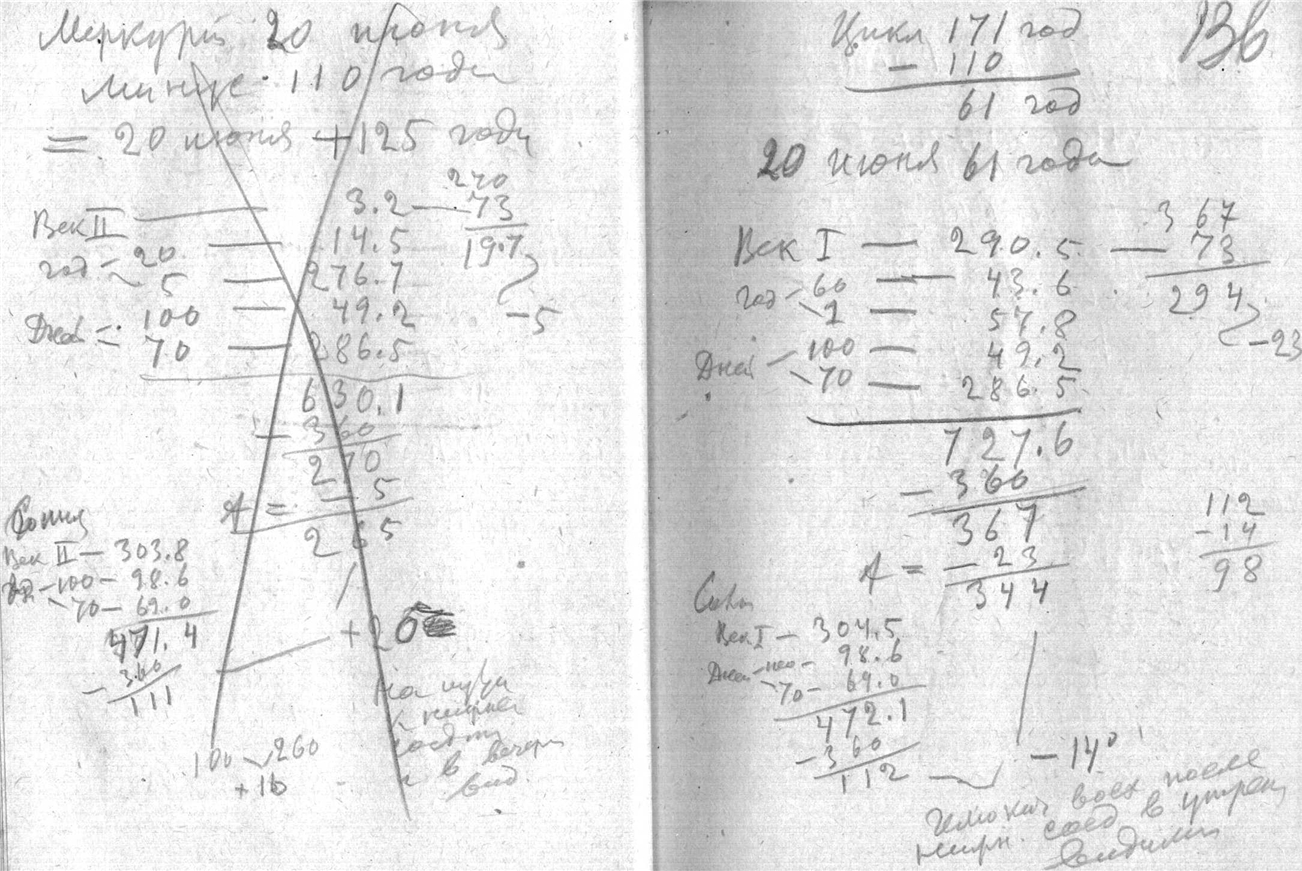 Меркурий 20 июня
минус 110 года
= 20 июня +125 года
Век II — 3.2 — 73
270
19.7
год - 20 — 14.5
5 — 276.7
-5
Дней = 100 — 49.2
70 — 286.5
630.1
- 360
270
- 5
A =
265
Век II — 303.8
100 — 98.6
70 — 69.0
471.4
- 360
111
+20
На пути
к нижнем
и в вечерн
вид
100 260
+16
Цикл 171 год
- 110
61 год
Вб
20 июня 61 года
Век I — 290.5 — 73
367
294
год - 60 — 43.6
1 — 57.8
-23
Дней - 100 — 49.2
70 — 286.5
727.6
- 360
367
A = - 23
344
112
- 14
98
Век I — 304.5
Дней - 100 - 98.6
70 - 69.0
472.1
- 360
112
- 14°
всех после
нижн. соед в утрен